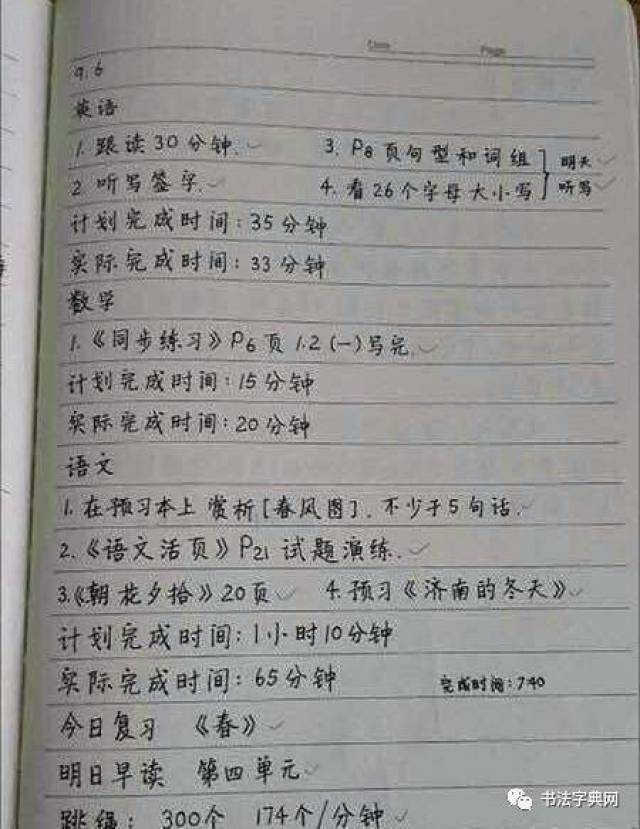 Date Page
9.6
英语
1. 跟读30分钟. ✓ 3. P8页句型和词组 } 明天 ✓
2. 听写签字. ✓ 4. 看26个字母大小写 } 听写 ✓
计划完成时间:35分钟
实际完成时间:33分钟
数学
1.《同步练习》P6页 1.2 (一)写完. ✓
计划完成时间:15分钟
实际完成时间:20分钟
语文
1. 在预习本上 赏析[春风图]. 不少于5句话. ✓
2.《语文活页》P21 试题演练. ✓
3.《朝花夕拾》20页 ✓ 4. 预习《济南的冬天》 ✓
计划完成时间:1小时10分钟
实际完成时间:65分钟 完成时间:7:40
今日复习 《春》 ✓
明日早读 第四单元 ✓
跳绳: 300个 174个/分钟 ✓
书法字典网